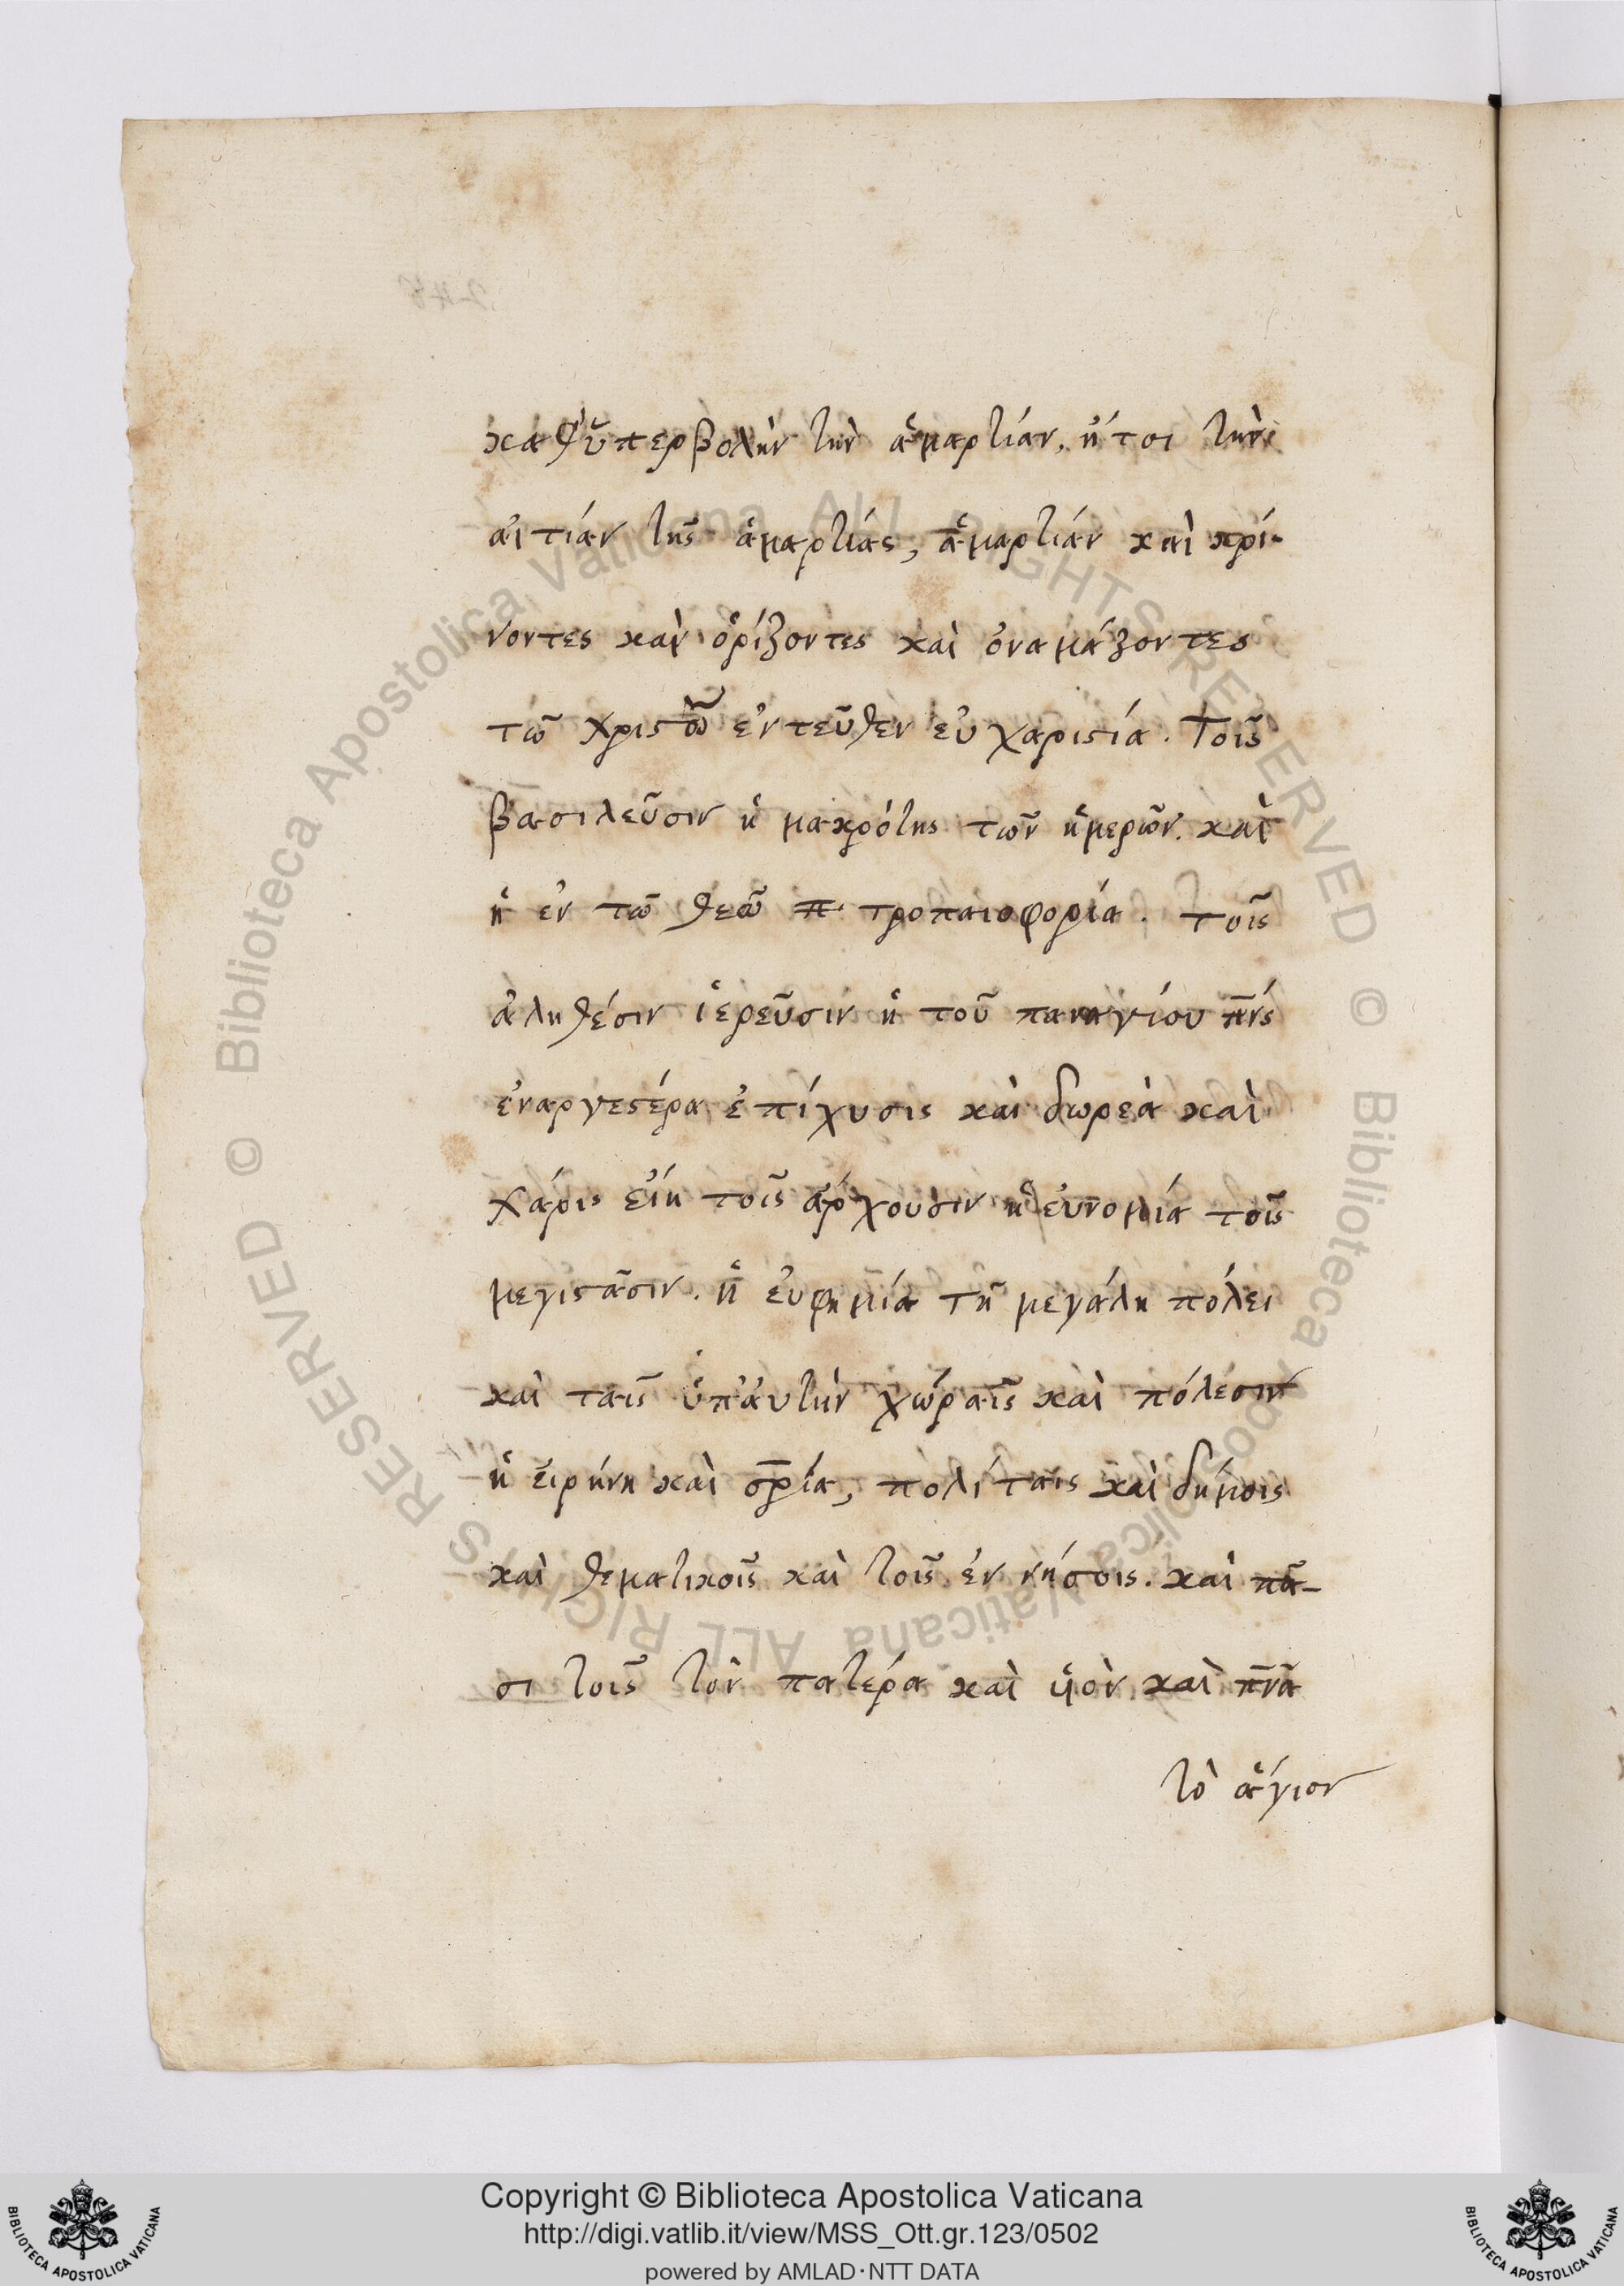 καθ' ὑπερβολὴν τὴν ἁμαρτίαν, ἤτοι τὴν
αἰτίαν τῆς ἁμαρτίας, ἁμαρτίαν καὶ κρί-
νοντες καὶ ὁρίζοντες καὶ ὀναμάζοντες
τῶ χριστῶ ἐντεῦθεν εὐχαριστία. Τοῖς
βασιλεῦσιν ἡ μακρότης τῶν ἡμερῶν. καὶ
ἡ ἐν τῶ θεῶ π τροπαιοφορία. τοῖς
ἀληθέσιν ἱερεῦσιν ἡ τοῦ παναγίου πνς
ἐναργεστέρα ἐπίχυσις καὶ δωρεὰ καὶ
χάρις εἴη τοῖς ἄρχουσιν ἡ εὐνομία τοῖς
μεγιστᾶσιν. ἡ εὐφημία τῆ μεγάλη πόλει
καὶ ταῖς ὑπ' αὐτὴν χώραις καὶ πόλεσιν
ἡ εἰρήνη καὶ σρία, πολίταις καὶ δήμοις
καὶ θεματικοῖς καὶ τοῖς ἐν νήσοις. καὶ πᾶ-
σι τοῖς τὸν πατέρα καὶ υἱὸν καὶ πνα
τὸ ἅγιον
Copyright © Biblioteca Apostolica Vaticana
http://digi.vatlib.it/view/MSS_Ott.gr.123/0502
powered by AMLAD·NTT DATA
© Biblioteca Apostolica Vaticana ALL RIGHTS RESERVED © Biblioteca Apostolica Vaticana ALL RIGHTS RESERVED
BIBLIOTECA APOSTOLICA VATICANA
BIBLIOTECA APOSTOLICA VATICANA